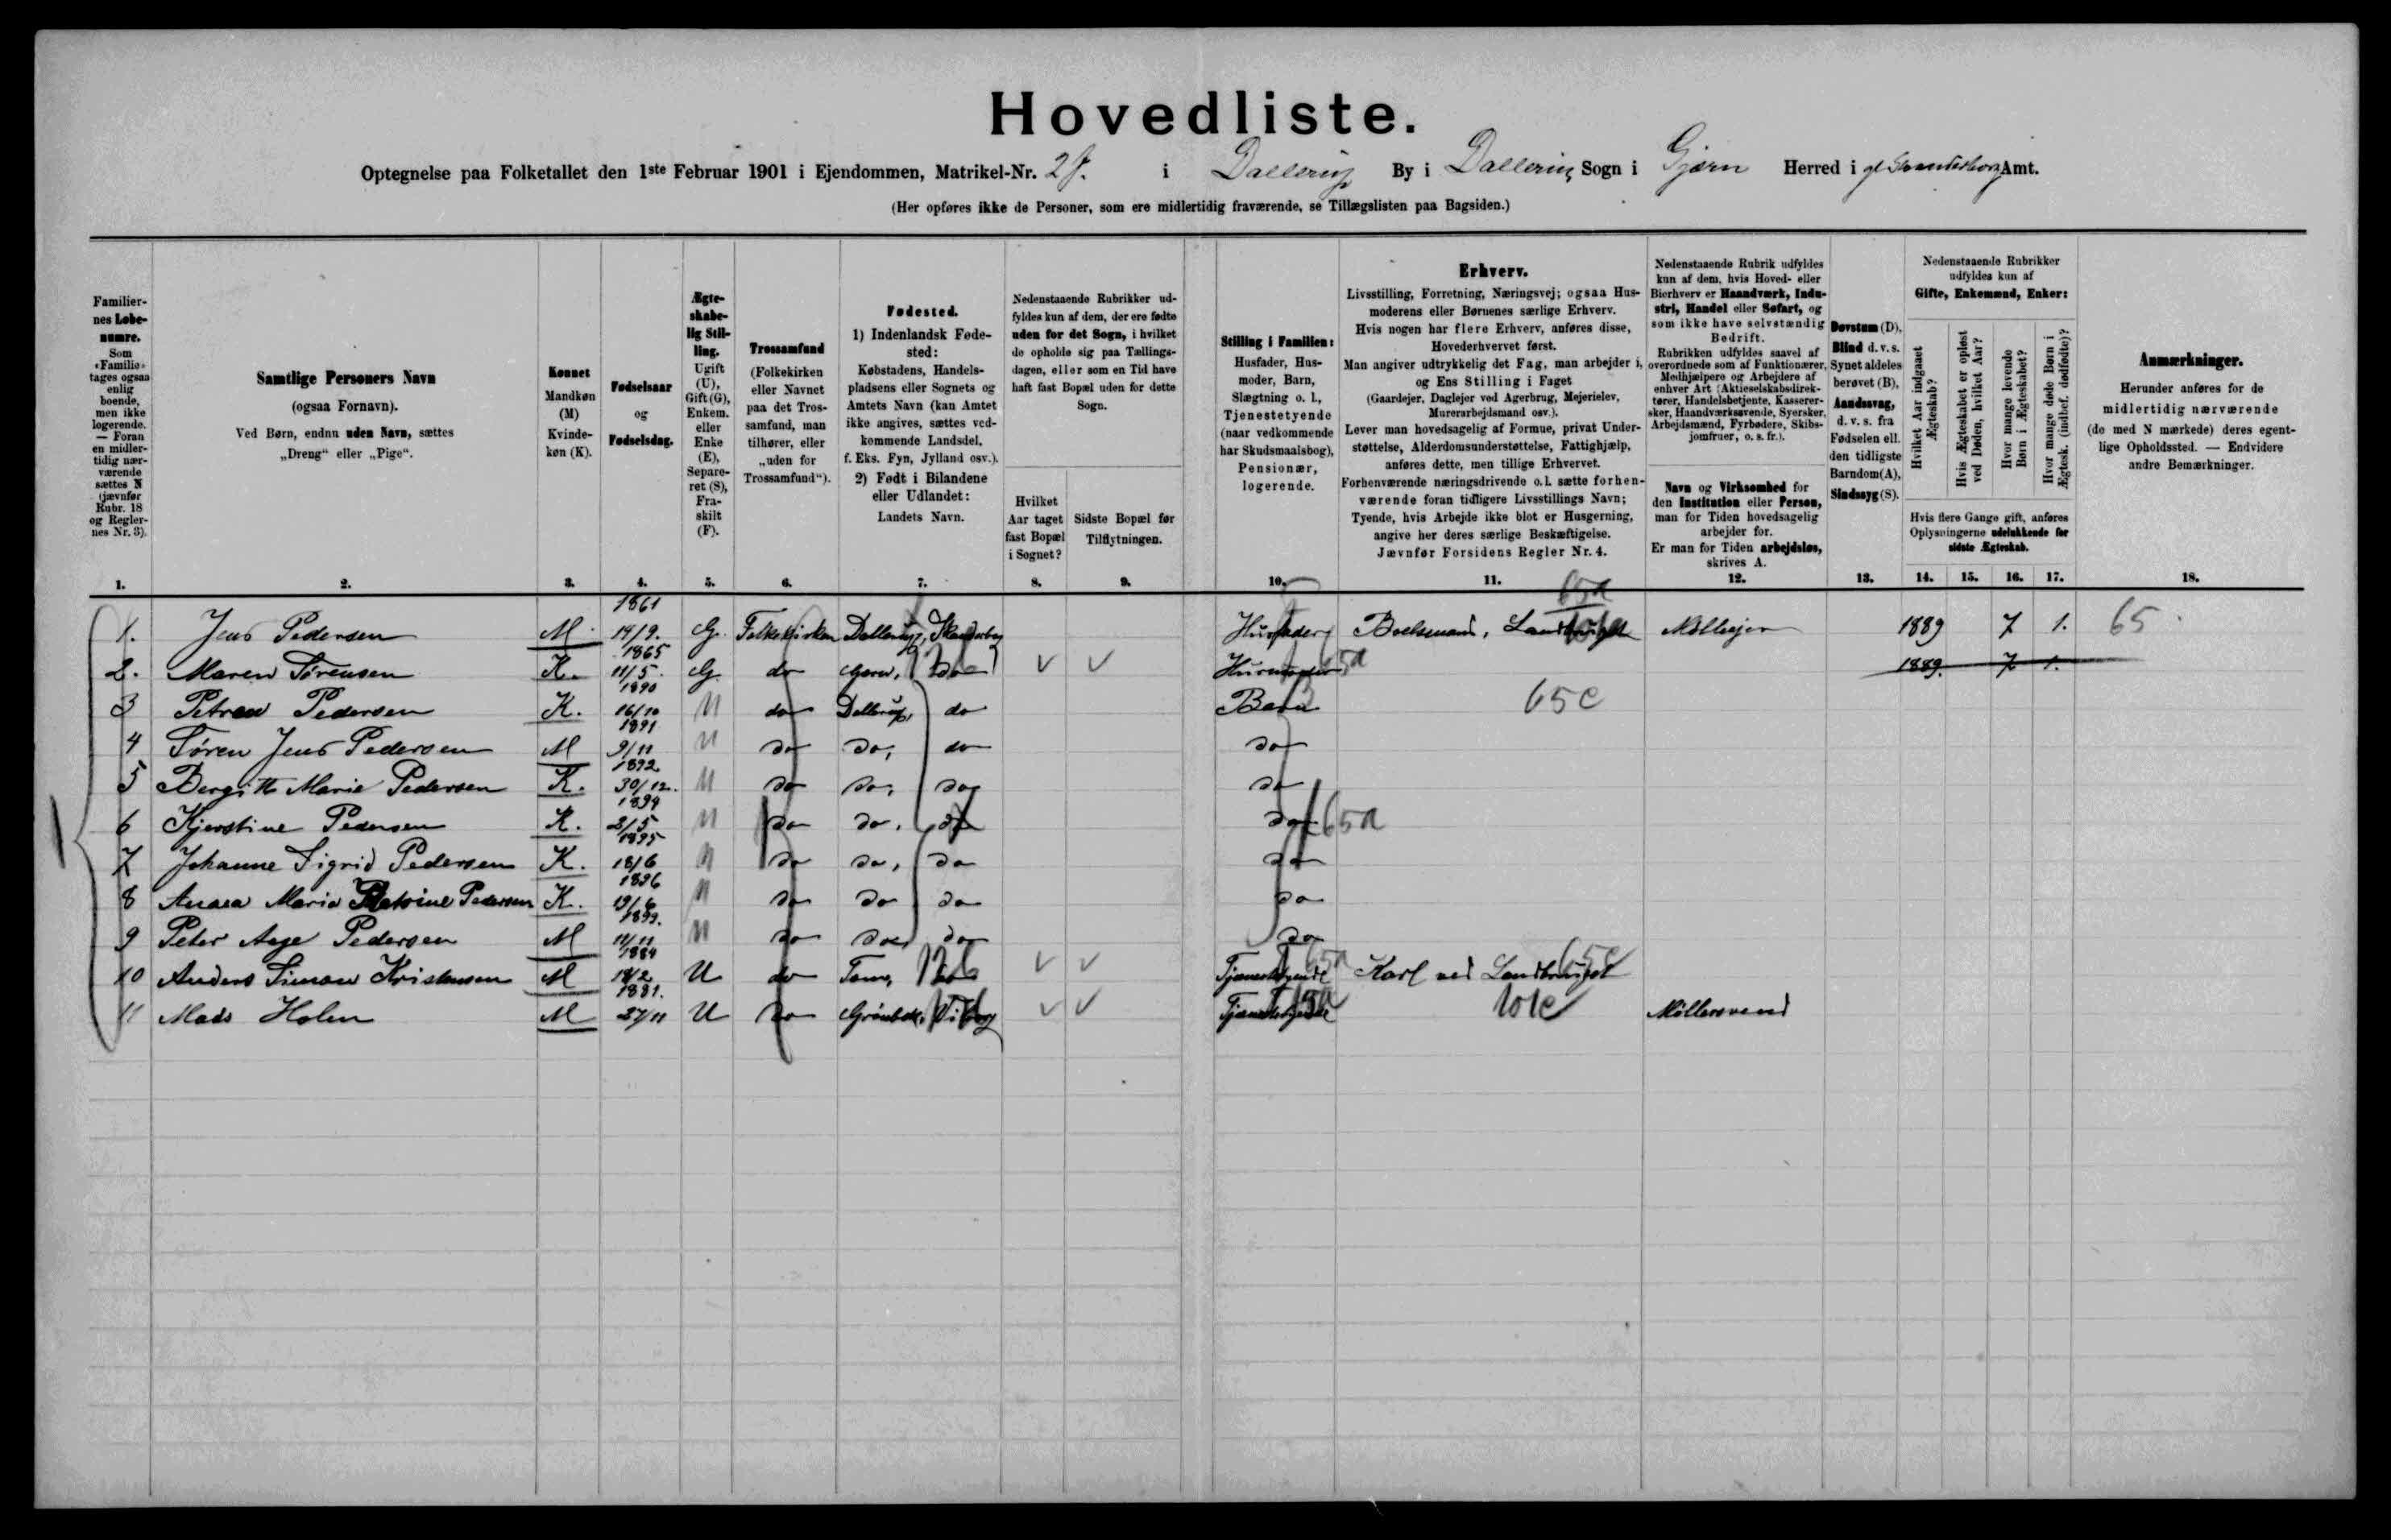 Hovedliste.
Optegnelse paa Folketallet den 1ste Februar 1901 i Ejendommen, Matrikel-Nr. 2 f. i Dallerup By i Dallerup Sogn i Gjærn Herred i gl Skanderborg Amt.
(Her opføres ikke de Personer, som ere midlertidig fraværende, se Tillægslisten paa Bagsiden.)
Familiernes Løbenumre. Som «Familie» tages ogsaa enlig boende, men ikke logerende. — Foran en midlertidig nærværende sættes N (jævnfør Rubr. 18 og Reglernes Nr. 3).
Samtlige Personers Navn
(ogsaa Fornavn).
Ved Børn, endnu uden Navn, sættes
„Dreng" eller „Pige".
Kønnet
Mandkøn
(M)
Kvinde-
køn (K).
Fødselsaar
og
Fødselsdag.
Ægte-
skabe-
lig Stil-
ling.
Ugift
(U),
Gift (G),
Enkem.
eller
Enke
(E),
Separe-
ret (S),
Fra-
skilt
(F).
Trossamfund
(Folkekirken
eller Navnet
paa det Tros-
samfund, man
tilhører, eller
„uden for
Trossamfund").
Fødested.
1) Indenlandsk Føde-
sted:
Købstadens, Handels-
pladsens eller Sognets og
Amtets Navn (kan Amtet
ikke angives, sættes ved-
kommende Landsdel,
f. Eks. Fyn, Jylland osv.).
2) Født i Bilandene
eller Udlandet:
Landets Navn.
Nedenstaaende Rubrikker ud-
fyldes kun af dem, der ere fødte
uden for det Sogn, i hvilket
de opholde sig paa Tællings-
dagen, eller som en Tid have
haft fast Bopæl uden for dette
Sogn.
Hvilket
Aar taget
fast Bopæl
i Sognet?
Sidste Bopæl før
Tilflytningen.
Stilling i Familien:
Husfader, Hus-
moder, Barn,
Slægtning o. l.,
Tjenestetyende
(naar vedkommende
har Skudsmaalsbog),
Pensionær,
logerende.
Erhverv.
Livsstilling, Forretning, Næringsvej; ogsaa Hus-
moderens eller Børnenes særlige Erhverv.
Hvis nogen har flere Erhverv, anføres disse,
Hovederhvervet først.
Man angiver udtrykkelig det Fag, man arbejder i,
og Ens Stilling i Faget
(Gaardejer, Daglejer ved Agerbrug, Mejerielev,
Murerarbejdsmand osv.).
Lever man hovedsagelig af Formue, privat Under-
støttelse, Alderdomsunderstøttelse, Fattighjælp,
anføres dette, men tillige Erhvervet.
Forhenværende næringsdrivende o. l. sætte forhen-
værende foran tidligere Livsstillings Navn;
Tyende, hvis Arbejde ikke blot er Husgerning,
angive her deres særlige Beskæftigelse.
Jævnfør Forsidens Regler Nr. 4.
Nedenstaaende Rubrik udfyldes
kun af dem, hvis Hoved- eller
Bierhverv er Haandværk, Indu-
stri, Handel eller Søfart, og
som ikke have selvstændig
Bedrift.
Rubrikken udfyldes saavel af
overordnede som af Funktionærer,
Medhjælpere og Arbejdere af
enhver Art (Aktieselskabsdirek-
tører, Handelsbetjente, Kasserer-
sker, Haandværkssvende, Syersker,
Arbejdsmænd, Fyrbødere, Skibs-
jomfruer, o. s. fr.).
Navn og Virksomhed for
den Institution eller Person,
man for Tiden hovedsagelig
arbejder for.
Er man for Tiden arbejdsløs,
skrives A.
Døvstum (D),
Blind d. v. s.
Synet aldeles
berøvet (B),
Aandssvag,
d. v. s. fra
Fødselen ell.
den tidligste
Barndom (A),
Sindssyg (S).
Nedenstaaende Rubrikker
udfyldes kun af
Gifte, Enkemænd, Enker:
Hvilket Aar indgaaet Ægteskab?
Hvis Ægteskabet er opløst ved Døden, hvilket Aar?
Hvor mange levende Børn i Ægteskabet?
Hvor mange døde Børn i Ægtesk. (indbef. dødfødte)?
Hvis flere Gange gift, anføres
Oplysningerne udelukkende for
sidste Ægteskab.
Anmærkninger.
Herunder anføres for de
midlertidig nærværende
(de med N mærkede) deres egent-
lige Opholdssted. — Endvidere
andre Bemærkninger.
1. 2. 3. 4. 5. 6. 7. 8. 9. 10. 11. 12. 13. 14. 15. 16. 17. 18.
1. Jens Pedersen M. 1861 14/9. G. Folkekirken Dallerup, Skanderborg Husfader Boelsmand, Landbruget 65a 101a Mølleejer 1889 7 1. 65
2. Maren Sørensen K. 1865 11/5. G do Gjern, do Husmoder 65a 1889. 7 1.
3 Petrea Pedersen K. 1890 16/10 U do Dallerup, do Barn 65c
4 Søren Jens Pedersen M 1891 9/11 U do do, do do
5 Bergitte Marie Pedersen K. 1892 30/12. U do do, do do
6 Kjerstine Pedersen K. 1894 2/5 U do do, do do 65a
7 Johanne Sigrid Pedersen K. 1895 18/6 U do do, do do
8 Anna Marie Petrine Pedersen K. 1896 19/6 U do do do do
9 Peter Aage Pedersen M 1899. 11/11 U do do, do do
10 Anders Simon Kristensen M 1884 18/2 U do do Tjenestetyende 65a Karl ved Landbruget 65c
11 Mads Holm M 1881. 27/11 U do Grønbæk, Viborg Tjenestetyende 101c Møllersvend